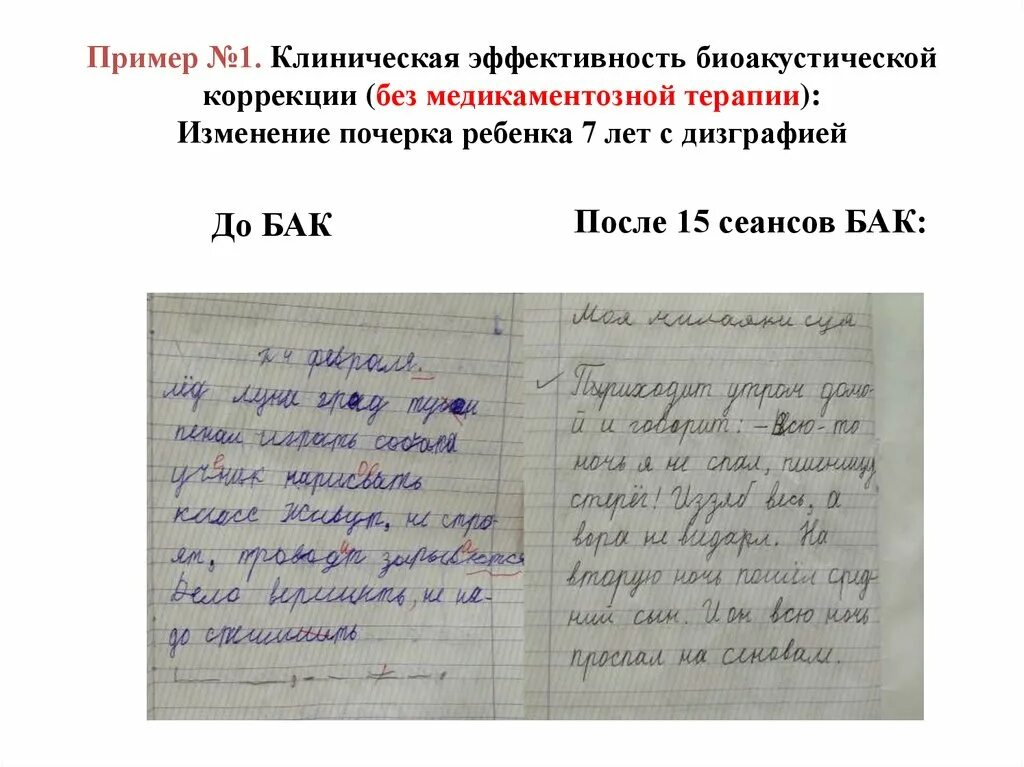 Пример №1. Клиническая эффективность биоакустической
коррекции (без медикаментозной терапии):
Изменение почерка ребенка 7 лет с дизграфией
До БАК
После 15 сеансов БАК:
4 февраля.
лёд луна град
пенал играть собака
учник нарисвать
класс Живут, не стро-
ят,
Дело вершить, не на-
до
Моя
Пыриходит утром домо-
й и говорит: -Всю-то
ночь я не спал, пшеницу
стерёг! Иззяб весь, а
вора не видарл. На
вторую ночь пошёл сред-
ний сын. И он всю ночь
проспал на сеновам.